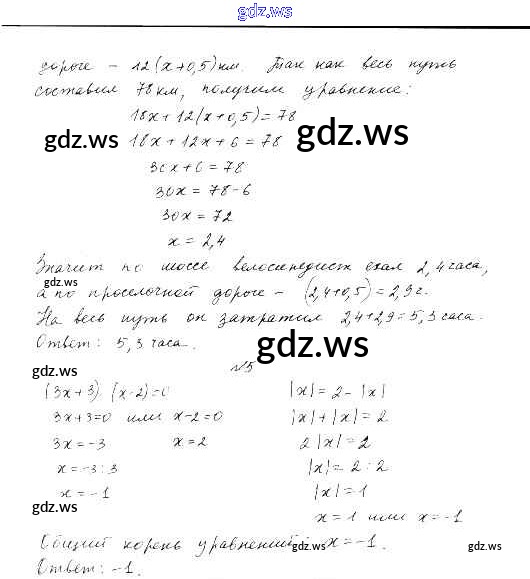 gdz.ws
дороге - 12(x+0,5) км. Так как весь путь
составил 78 км, получим уравнение:
18x + 12(x+0,5) = 78
gdz.ws 18x + 12x + 6 = 78 gdz.ws
30x + 6 = 78
30x = 78-6
30x = 72
x = 2,4
Значит по шоссе велосипедист ехал 2,4 часа,
gdz.ws
а по проселочной дороге - (2,4+0,5) = 2,9 ч.
На весь путь он затратил 2,4+2,9=5,3 часа.
Ответ: 5,3 часа. gdz.ws
gdz.ws №5
(3x+3)(x-2)=0 |x| = 2 - |x|
3x+3=0 или x-2=0 |x| + |x| = 2
3x = -3 x = 2 2|x| = 2
x = -3 : 3 |x| = 2 : 2
x = -1 |x| = 1
gdz.ws x = 1 или x = -1
Общий корень уравнений: gdz.ws x = -1. gdz.ws
gdz.ws
Ответ: -1.